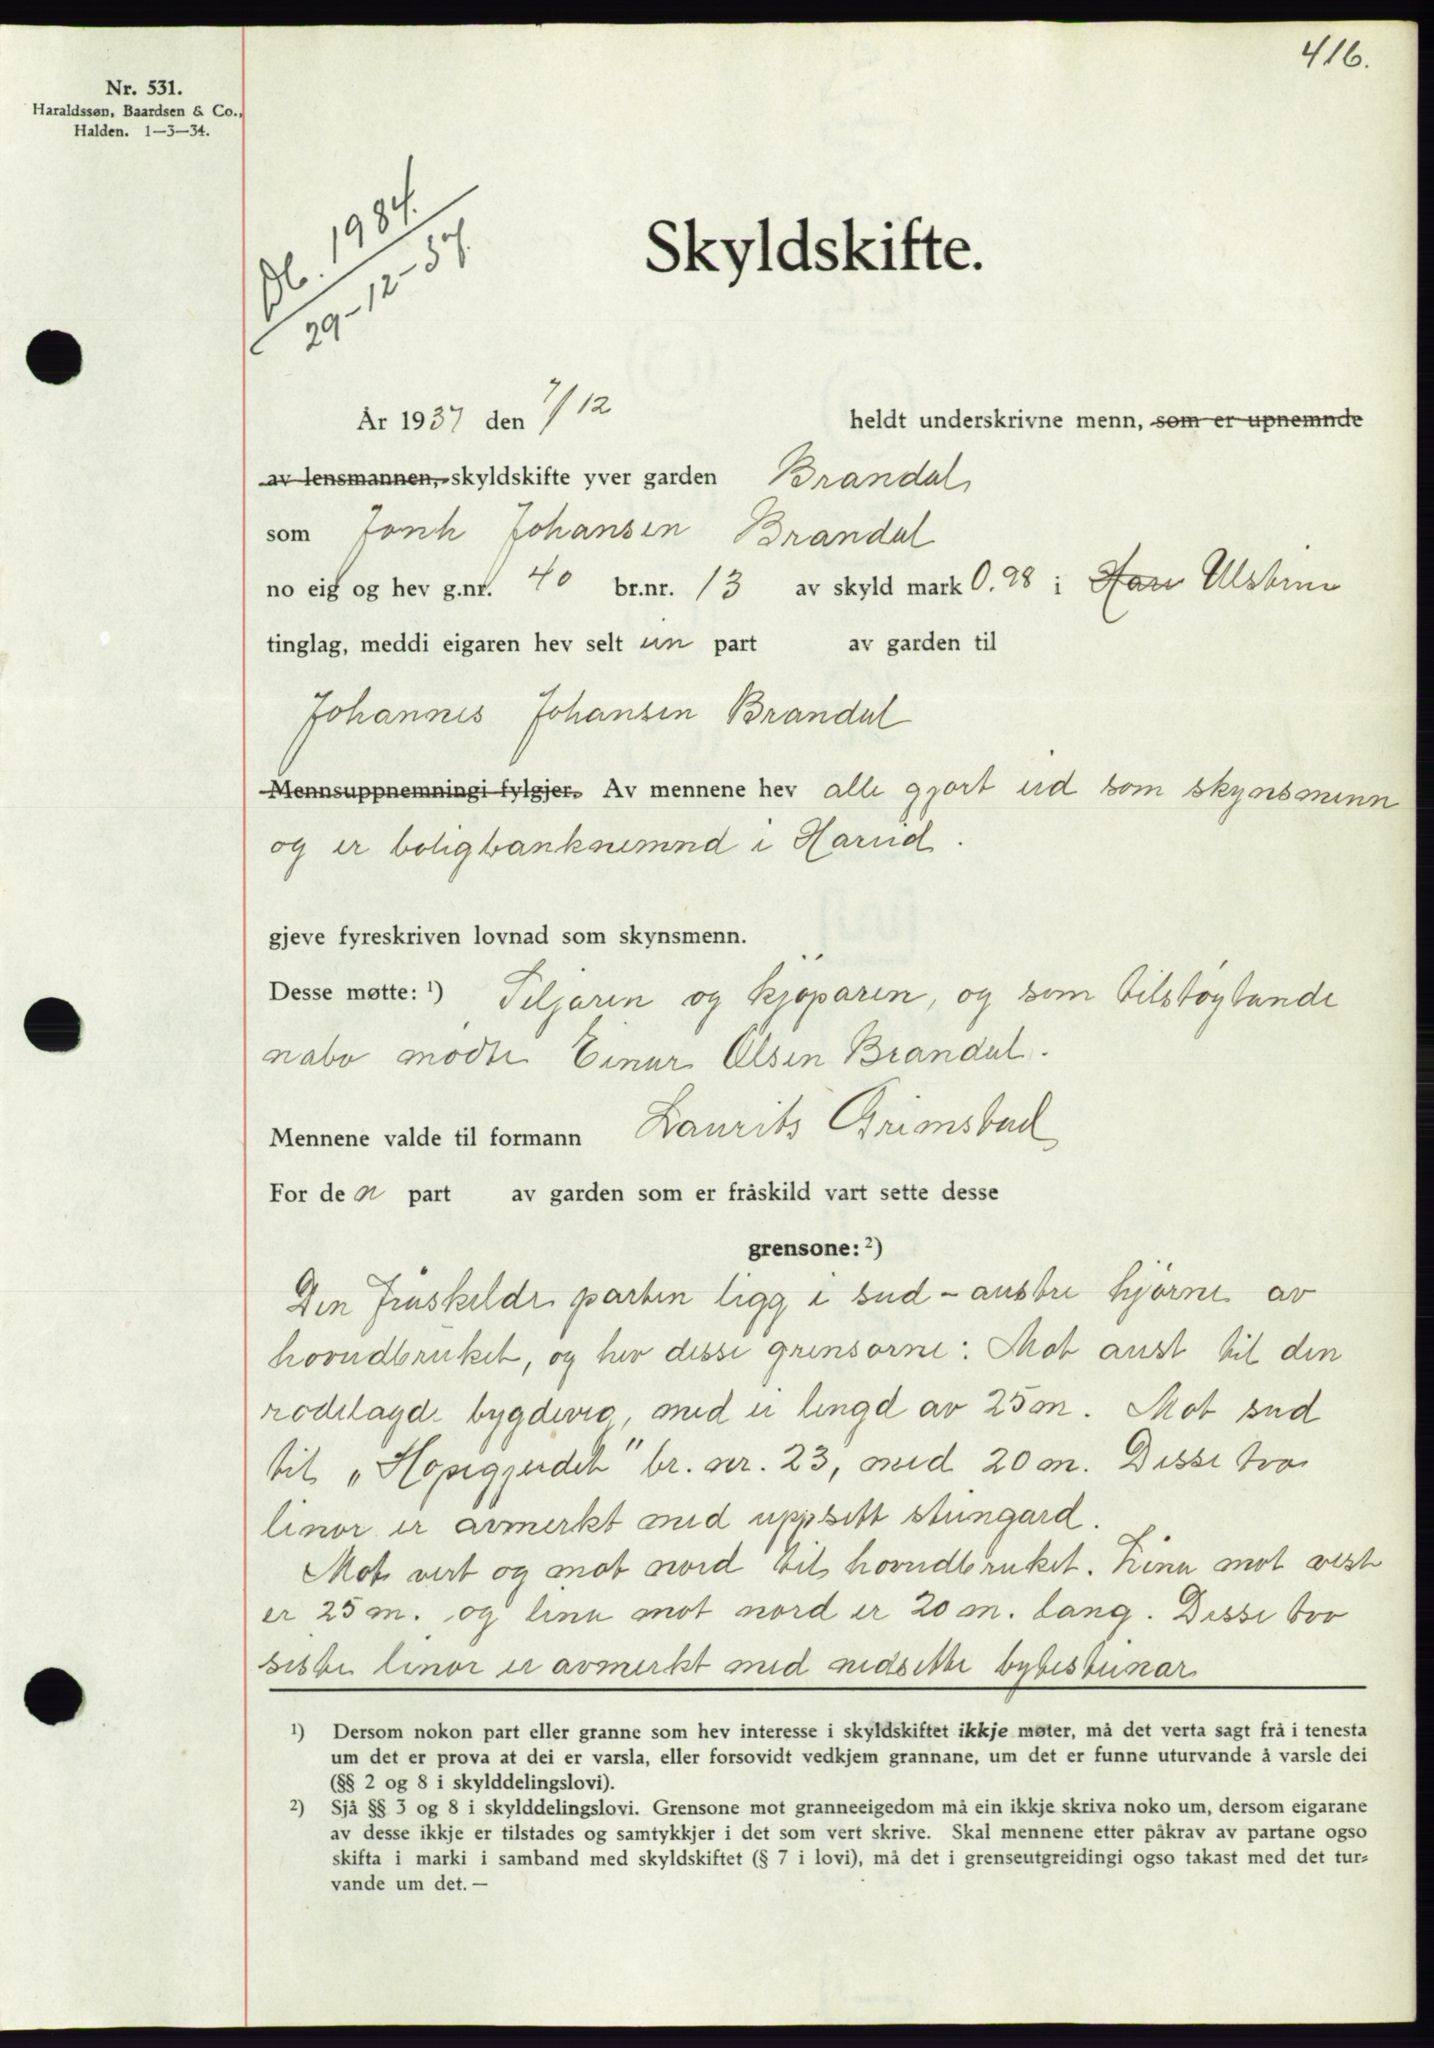 416.
Nr. 531.
Haraldssøn, Baardsen & Co.,
Halden. 1—3—34.
Db. 1984.
29-12-37.
Skyldskifte.
År 1937 den 7/12 heldt underskrivne menn, som er upnemnde
av lensmannen, skyldskifte yver garden Brandal
som Jonh Johansen Brandal
no eig og hev g.nr. 40 br.nr. 13 av skyld mark 0.98 i Hare Ulstein
tinglag, meddi eigaren hev selt ein part av garden til
Johannes Johansen Brandal
Mennsuppnemningi fylgjer. Av mennene hev alle gjort eid som skynsmenn
og er boligbanknemnd i Hareid.
gjeve fyreskriven lovnad som skynsmenn.
Desse møtte: ¹) Seljaren og kjøparen, og som tilstøytande
nabo mødte Einar Olsen Brandal.
Mennene valde til formann Laurits Grimstad
For den part av garden som er fråskild vart sette desse
grensone: ²)
Den fråskilde parten ligg i sud-austre hjørne av
hovudbruket, og hev desse grensorne: Mot aust til den
rodelagde bygdeveg, med ei lengd av 25 m. Mot sud
til "Hopegjerdet" br. nr. 23, med 20 m. Desse tvo
linor er avmerkt med uppsett steingard.
Mot vest og mot nord til hovudbruket. Lina mot vest
er 25 m. og lina mot nord er 20 m. lang. Desse tvo
siste linor er avmerkt med nedsette bytesteinar
¹) Dersom nokon part eller granne som hev interesse i skyldskiftet ikkje møter, må det verta sagt frå i tenesta
um det er prova at dei er varsla, eller forsovidt vedkjem grannane, um det er funne uturvande å varsle dei
(§§ 2 og 8 i skylddelingslovi).
²) Sjå §§ 3 og 8 i skylddelingslovi. Grensone mot granneeigedom må ein ikkje skriva noko um, dersom eigarane
av desse ikkje er tilstades og samtykkjer i det som vert skrive. Skal mennene etter påkrav av partane ogso
skifta i marki i samband med skyldskiftet (§ 7 i lovi), må det i grenseutgreidingi ogso takast med det tur-
vande um det. —